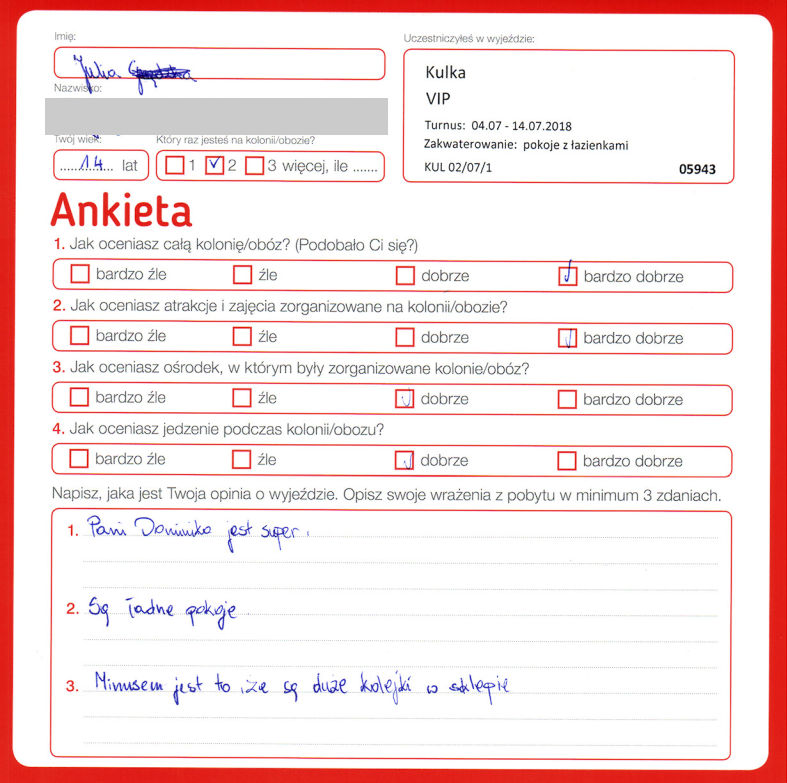 Imię:
Julia
Nazwisko:
Twój wiek:
Który raz jesteś na kolonii/obozie?
14 lat
1 2 3 więcej, ile .......
Uczestniczyłeś w wyjeździe:
Kulka
VIP
Turnus: 04.07 - 14.07.2018
Zakwaterowanie: pokoje z łazienkami
KUL 02/07/1
05943
Ankieta
1. Jak oceniasz całą kolonię/obóz? (Podobało Ci się?)
bardzo źle źle dobrze bardzo dobrze
2. Jak oceniasz atrakcje i zajęcia zorganizowane na kolonii/obozie?
bardzo źle źle dobrze bardzo dobrze
3. Jak oceniasz ośrodek, w którym były zorganizowane kolonie/obóz?
bardzo źle źle dobrze bardzo dobrze
4. Jak oceniasz jedzenie podczas kolonii/obozu?
bardzo źle źle dobrze bardzo dobrze
Napisz, jaka jest Twoja opinia o wyjeździe. Opisz swoje wrażenia z pobytu w minimum 3 zdaniach.
1. Pani Dominika jest super.
2. Są ładne pokoje
3. Minusem jest to, że są duże kolejki w sklepie